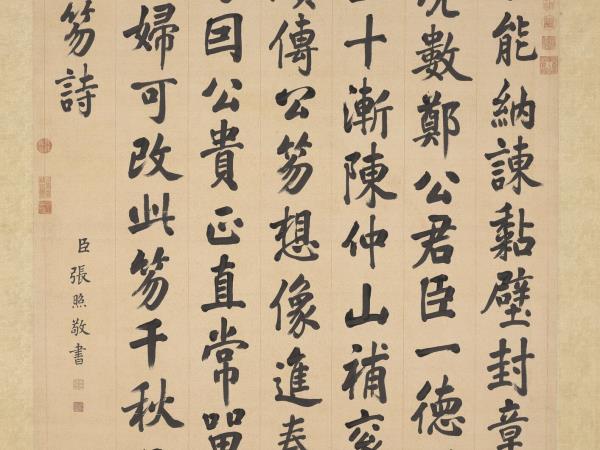 能納諫黏壁封章
數鄭公君臣一德
十漸陳仲山補袞
傳公笏想像進奏
囘公貴正直常
婦可改此笏千秋
笏詩
臣張照敬書